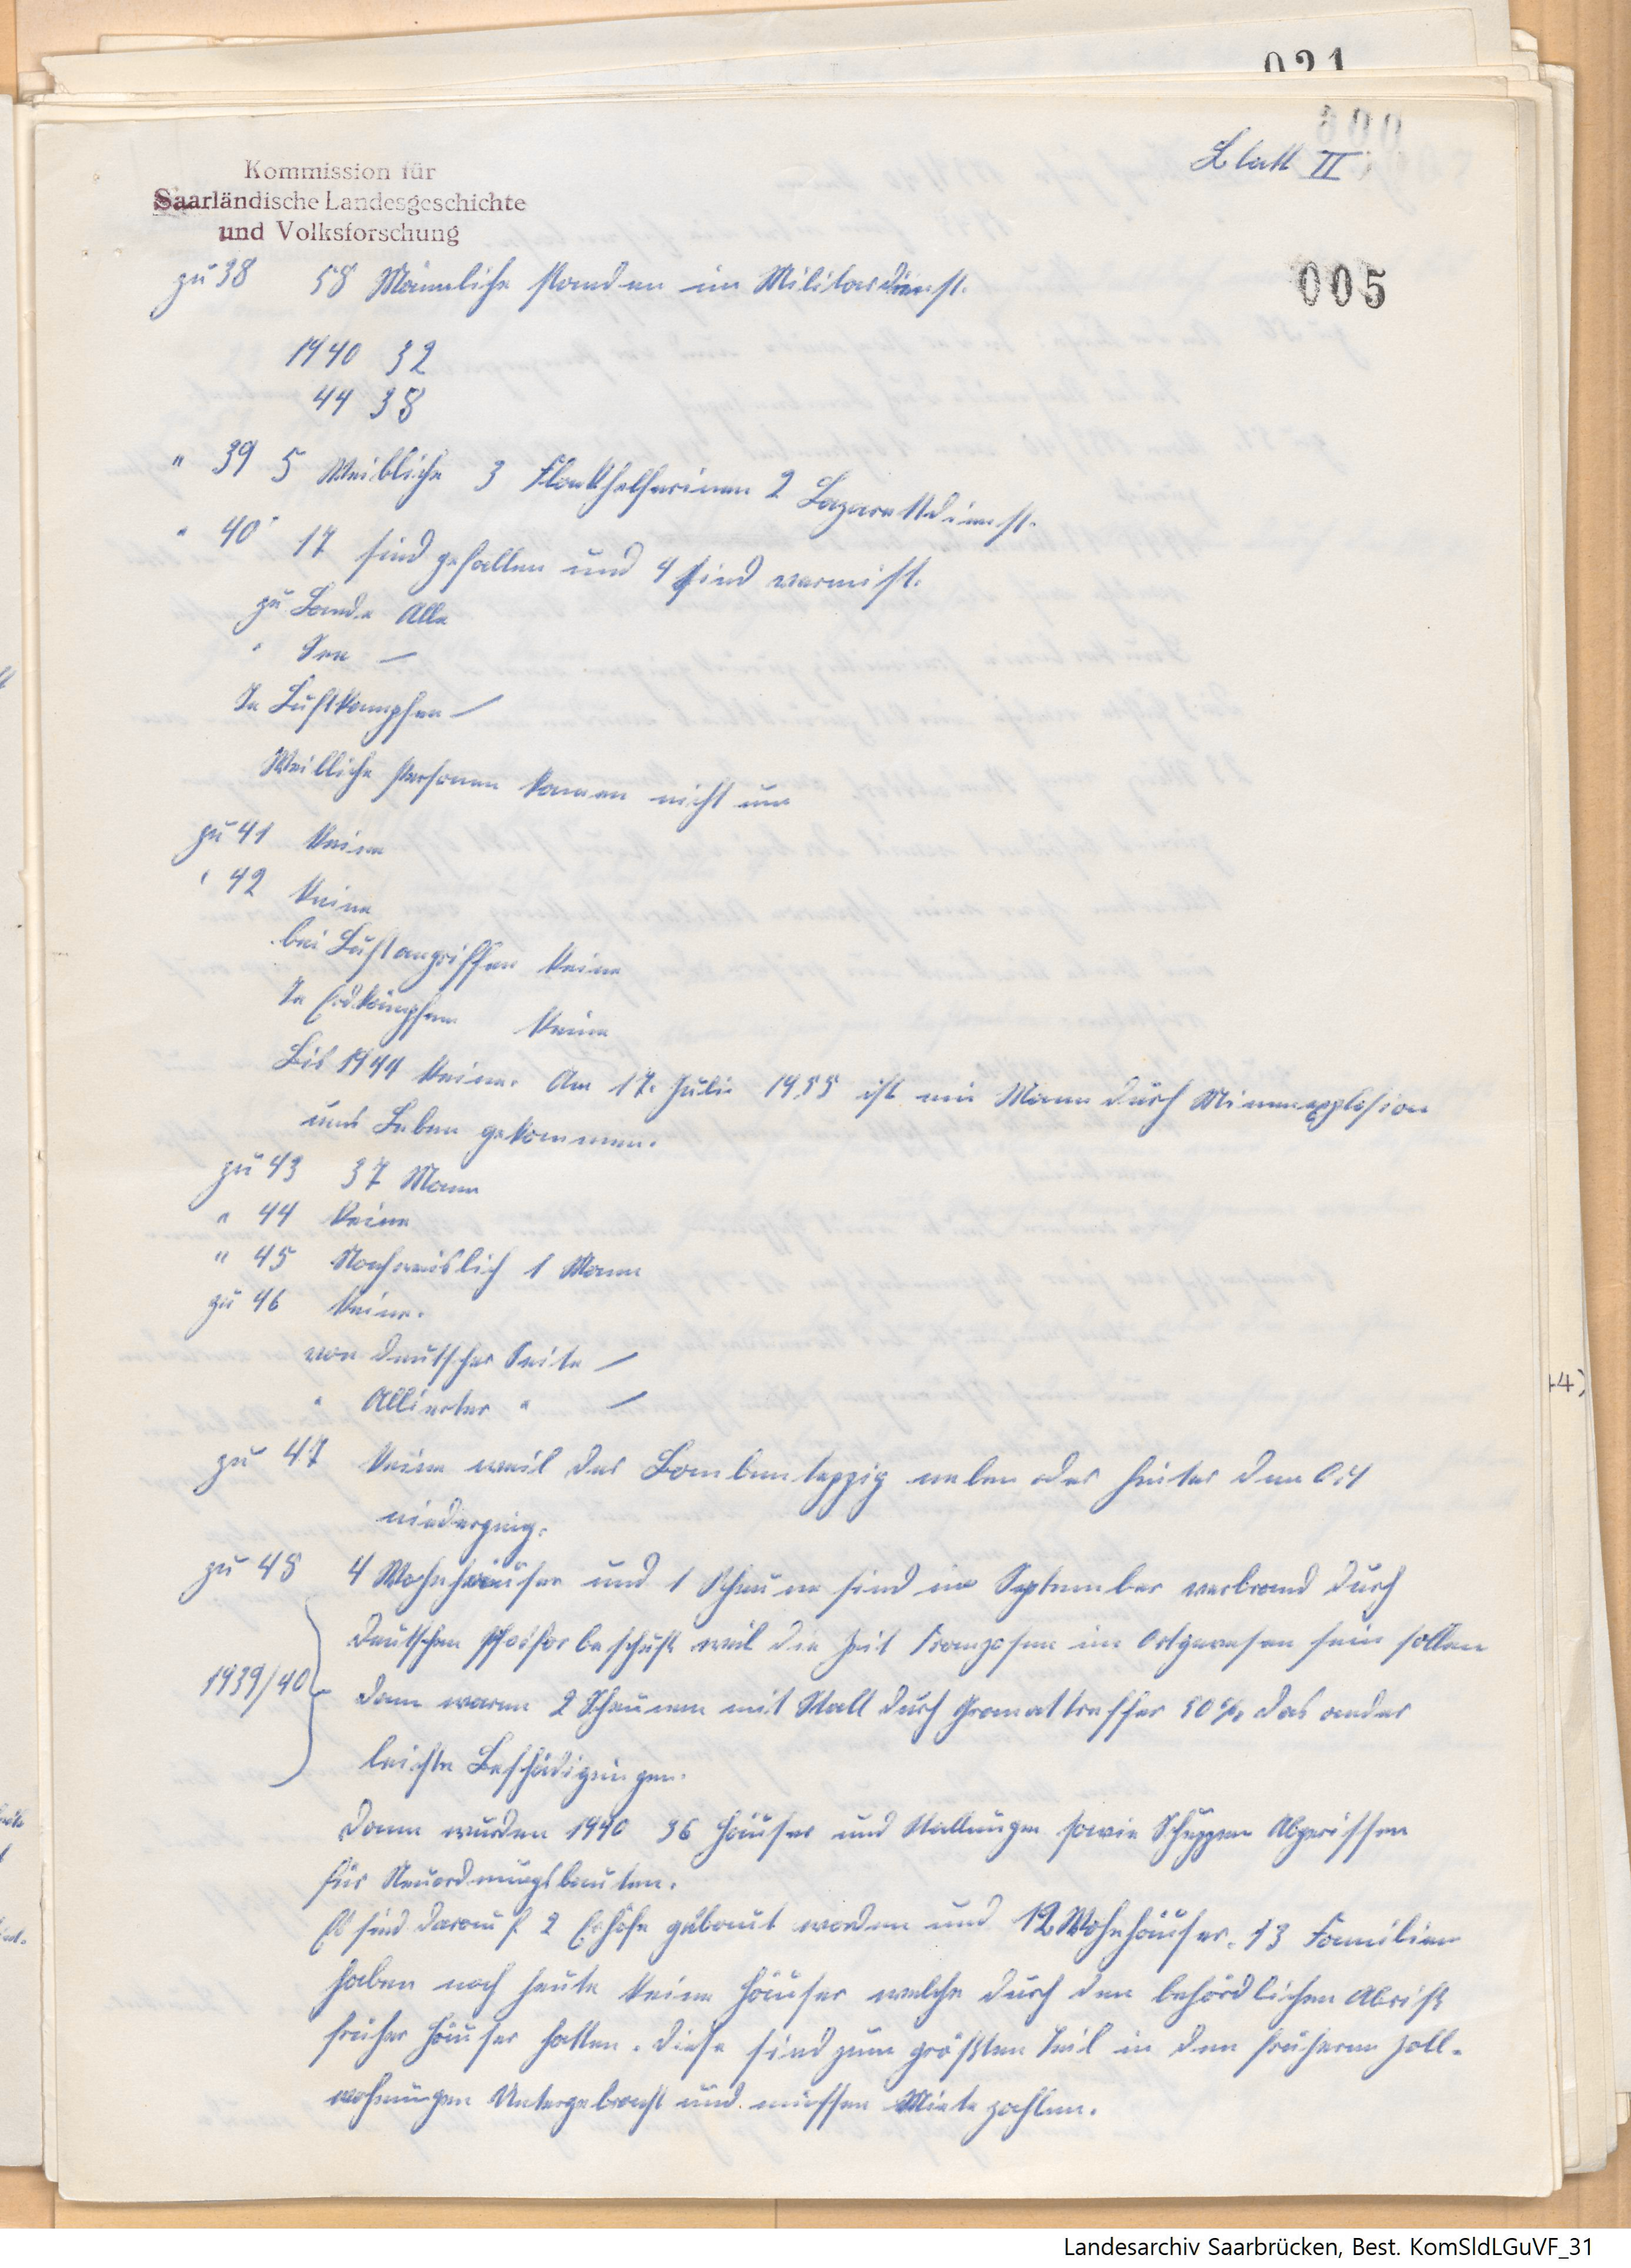 021
Blatt II
Kommission für
Saarländische Landesgeschichte
und Volksforschung
005
zu 38 58 Männliche standen im Militärdienst.
1940 32
44 38
" 39 5 Weibliche 3 Flakhelferinen 2 Lazarettdienst.
" 40 17 sind gefallen und 4 sind vermist.
zu Lande Alle
" See —
In Luftkampfen —
Weibliche Personen kamen nicht um
zu 41 Keine
" 42 Keine
bei Luftangriffen Keine
In Erdkämpfen Keine
Bis 1944 Keine. Am 17. Juli 1955 ist ein Mann durch Minenexplosion
ums Leben gekommen.
zu 43 37 Mann
" 44 Keine
" 45 Nachweislich 1 Mann
zu 46 Keine.
von deutscher Seite —
" Allierter " —
zu 47 Keine weil der Bombenteppig neben oder hinter dem Ort
niederging.
zu 48 4 Wohnhäuser und 1 Scheune sind im September verbrand durch
Deutschen Phosforbeschuß weil die Zeit Franzosen im Ort gewesen sein sollen
1939/40 Dann waren 2 Scheunen mit Stall durch Granattreffer 50% das ander
leichte Beschädigungen.
Dann wurden 1940 36 Häuser und Stallungen sowie Schuppen Abgerissen
für Neuordnungsbauten.
Es sind darauf 2 Erhöfe gebaut worden und 12 Wohnhäuser. 13 Familien
haben noch heute keine Häuser welche durch den behördlichen Abriß
früher Häuser hatten. Diese sind zum größten Teil in den früheren Zoll-
wohnungen Untergebracht und müssen Miete zahlen.
44)
Landesarchiv Saarbrücken, Best. KomSldLGuVF_31